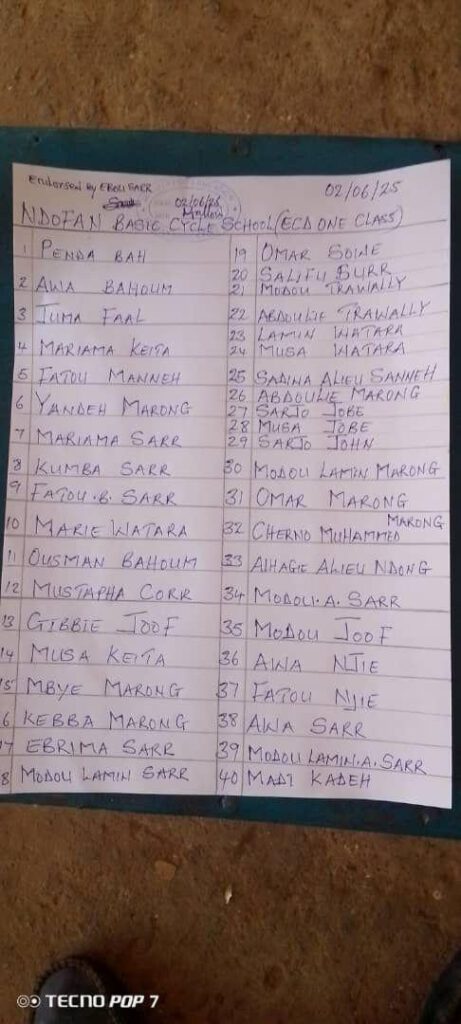 Endorsed by EBOU SARR
02/06/25
02/06/25
NDOFAN BASIC CYCLE SCHOOL (ECD ONE CLASS)
1 PENDA BAH
2 AWA BAHOUM
3 JUMA FAAL
4 MARIAMA KEITA
5 FATOU MANNEH
6 YANDEH MARONG
7 MARIAMA SARR
8 KUMBA SARR
9 FATOU .B. SARR
10 MARIE WATARA
11 OUSMAN BAHOUM
12 MUSTAPHA CORR
13 GIBBIE JOOF
14 MUSA KEITA
15 MBYE MARONG
6 KEBBA MARONG
7 EBRIMA SARR
8 MODOU LAMIN SARR
19 OMAR SOWE
20 SALIFU BURR
21 MODOU TRAWALLY
22 ABDOULIE TRAWALLY
23 LAMIN WATARA
24 MUSA WATARA
25 SADINA ALIEU SANNEH
26 ABDOULIE MARONG
27 SARJO JOBE
28 MUSA JOBE
29 SARJO JOHN
30 MODOU LAMIN MARONG
31 OMAR MARONG
32 CHERNO MUHAMMED MARONG
33 AlHAGIE ALIEU NDONG
34 MODOU .A. SARR
35 MODOU JOOF
36 AWA NJIE
37 FATOU NJIE
38 AWA SARR
39 MODOU LAMIN .A. SARR
40 MADI KADEH
TECNO POP 7